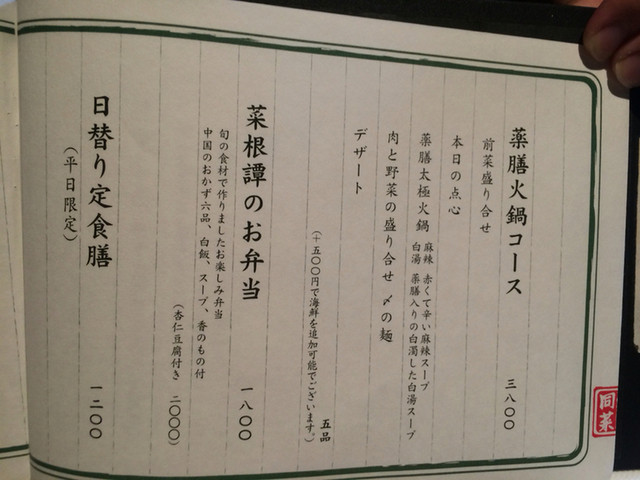 薬膳火鍋コース 三八〇〇
前菜盛り合せ
本日の点心
薬膳太極火鍋 麻辣 赤くて辛い麻辣スープ
白湯 薬膳入りの白濁した白湯スープ
肉と野菜の盛り合せ 〆の麺
デザート
五品
(+五〇〇円で海鮮を追加可能でございます。)
菜根譚のお弁当 一八〇〇
旬の食材で作りましたお楽しみ弁当
中国のおかず六品、白飯、スープ、香のもの付
(杏仁豆腐付き 二〇〇〇)
日替り定食膳 一二〇〇
(平日限定)